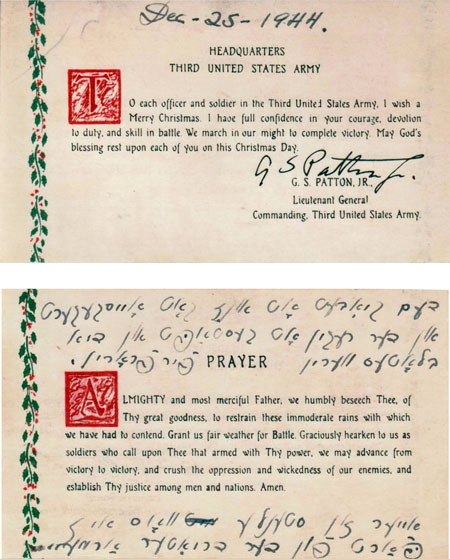 Dec-25-1944.
HEADQUARTERS
THIRD UNITED STATES ARMY
TO each officer and soldier in the Third United States Army, I wish a
Merry Christmas. I have full confidence in your courage, devotion
to duty, and skill in battle. We march in our might to complete victory. May God's
blessing rest upon each of you on this Christmas Day.
G S Patton Jr.
G. S. PATTON, JR.,
Lieutenant General
Commanding, Third United States Army.
דעם גיבעט אט אונז גאט אויסגעהערט
און דער רעגין אט געסטאפט און
בלאטעס ווערין
PRAYER
ALMIGHTY and most merciful Father, we humbly beseech Thee, of
Thy great goodness, to restrain these immoderate rains with which
we have had to contend. Grant us fair weather for Battle. Graciously hearken to us as
soldiers who call upon Thee that armed with Thy power, we may advance from
victory to victory, and crush the oppression and wickedness of our enemies, and
establish Thy justice among men and nations. Amen.
אייער זון סטענלי וואס איז
פארט פון דער